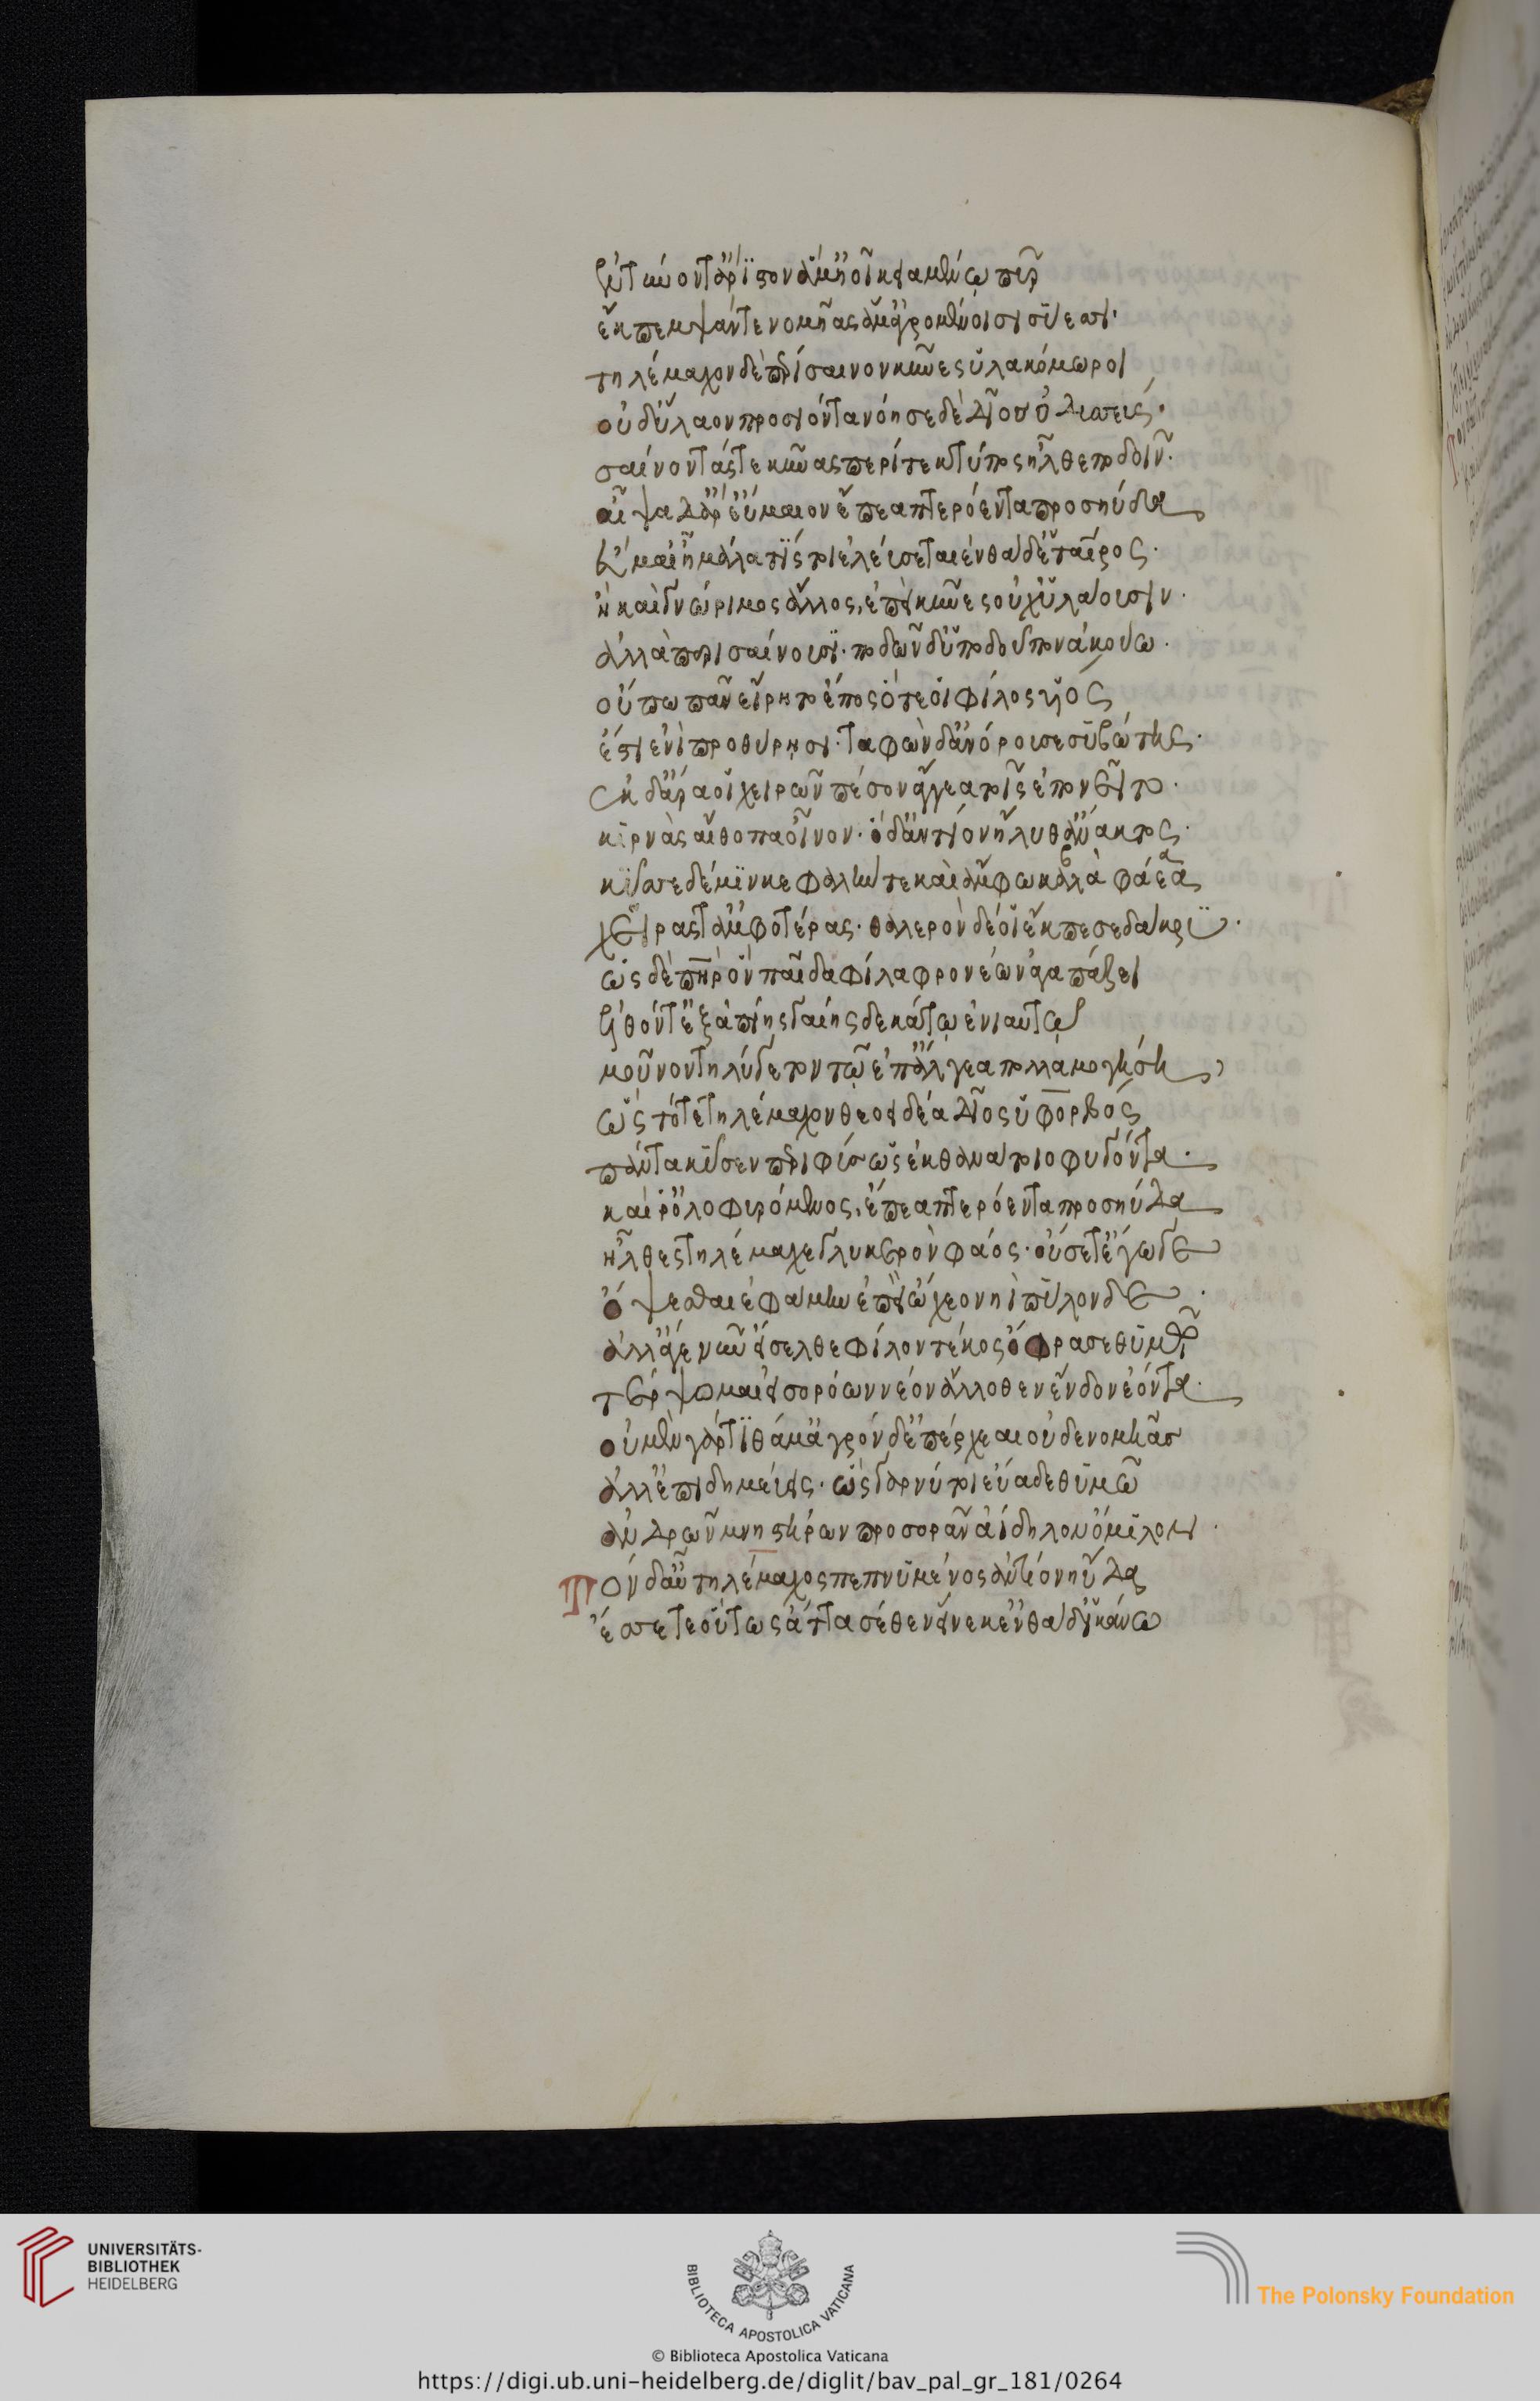 ἐντύνοντ' ἄριστον ἅμ' ἠοῖ κειαμένω πῦρ
ἔκπεμψάν τε νομῆας ἅμ' ἀγρομένοισι σύεσσι·
τηλέμαχον δὲ περίσσαινον κύνες ὑλακόμωροι
οὐδ' ὕλαον προσιόντα νόησε δὲ δῖος ὀδυσσεύς·
σαίνοντάς τε κύνας περί τε κτύπος ἦλθε ποδοῖϊν·
αἶψα δ' ἄρ' εὔμαιον ἔπεα πτερόεντα προσηύδα
εὔμαι' ἦ μάλα τίς τοι ἐλεύσεται ἐνθάδ' ἑταῖρος·
ἢ καὶ γνώριμος ἄλλος, ἐπεὶ κύνες οὐχ ὑλάουσιν·
ἀλλὰ περισσαίνουσι· ποδῶν δ' ὑπὸ δοῦπον ἀκούω·
οὔπω πᾶν εἴρητο ἔπος ὅτε οἱ φίλος υἱός
ἔστη ἐνὶ προθύρησι· ταφὼν δ' ἀνόρουσε συβώτης·
ἐκ δ' ἄρα οἱ χειρῶν πέσον ἄγγεα τοῖς ἐπονεῖτο·
κιρνὰς αἴθοπα οἶνον· ὁ δ' ἀντίον ἤλυθ' ἄνακτος·
κύσσε δέ μιν κεφαλήν τε καὶ ἄμφω καλὰ φάεα
χεῖράς τ' ἀμφοτέρας· θαλερὸν δέ οἱ ἔκπεσε δάκρυ·
ὡς δὲ πατὴρ ὃν παῖδα φίλα φρονέων ἀγαπάζει
ἐλθόντ' ἐξ ἀπίης γαίης δεκάτῳ ἐνιαυτῷ
μοῦνον τηλύγετον τῷ ἐπ' ἄλγεα πολλὰ μογήσῃ,
ὣς τότε τηλέμαχον θεοειδέα δῖος ὑφορβός
πάντα κύσεν περιφὺς ὡς ἐκ θανάτοιο φυγόντα·
καί ῥ' ὀλοφυρόμενος, ἔπεα πτερόεντα προσηύδα
ἦλθες τηλέμαχε γλυκερὸν φάος· οὔ σ' ἔτ' ἔγωγε
ὄψεσθαι ἐφάμην ἐπεὶ ᾤχεο νηῒ πύλονδε·
ἀλλ' ἄγε νῦν εἴσελθε φίλον τέκος ὄφρα σε θυμῷ
τέρψομαι εἰσορόων νέον ἄλλοθεν ἔνδον ἐόντα·
οὐ μὲν γάρ τι θάμ' ἀγρόνδ' ἐπέρχεαι οὐδὲ νομῆας
ἀλλ' ἐπιδημεύεις· ὣς γάρ νύ τοι εὔαδε θυμῷ
ἀνδρῶν μνηστήρων προσορᾶν ἀΐδηλον ὅμιλον·
Τὸν δ' αὖ τηλέμαχος πεπνυμένος ἀντίον ηὔδα
ἔσσεται οὕτως ἄττα σέθεν εἵνεκ' ἐνθάδ' ἱκάνω
UNIVERSITÄTS-
BIBLIOTHEK
HEIDELBERG
BIBLIOTECA APOSTOLICA VATICANA
The Polonsky Foundation
© Biblioteca Apostolica Vaticana
https://digi.ub.uni-heidelberg.de/diglit/bav_pal_gr_181/0264